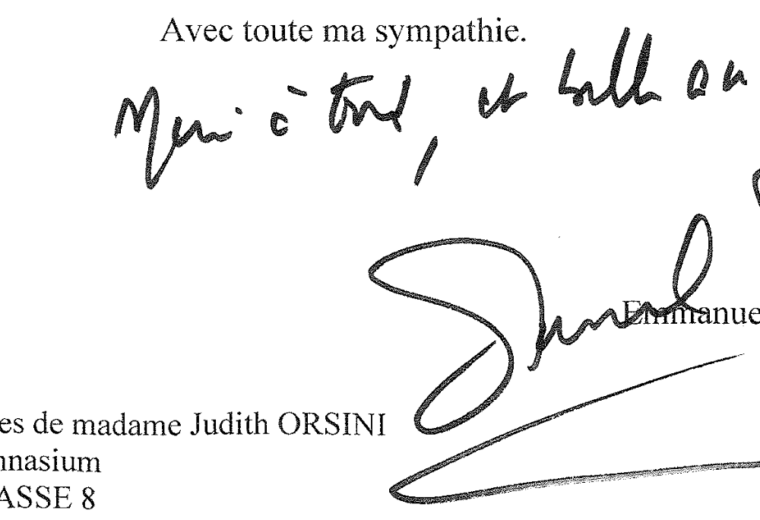 Avec toute ma sympathie.
Merci à tous, et belle an
Emmanue
es de madame Judith ORSINI
nnasium
ASSE 8